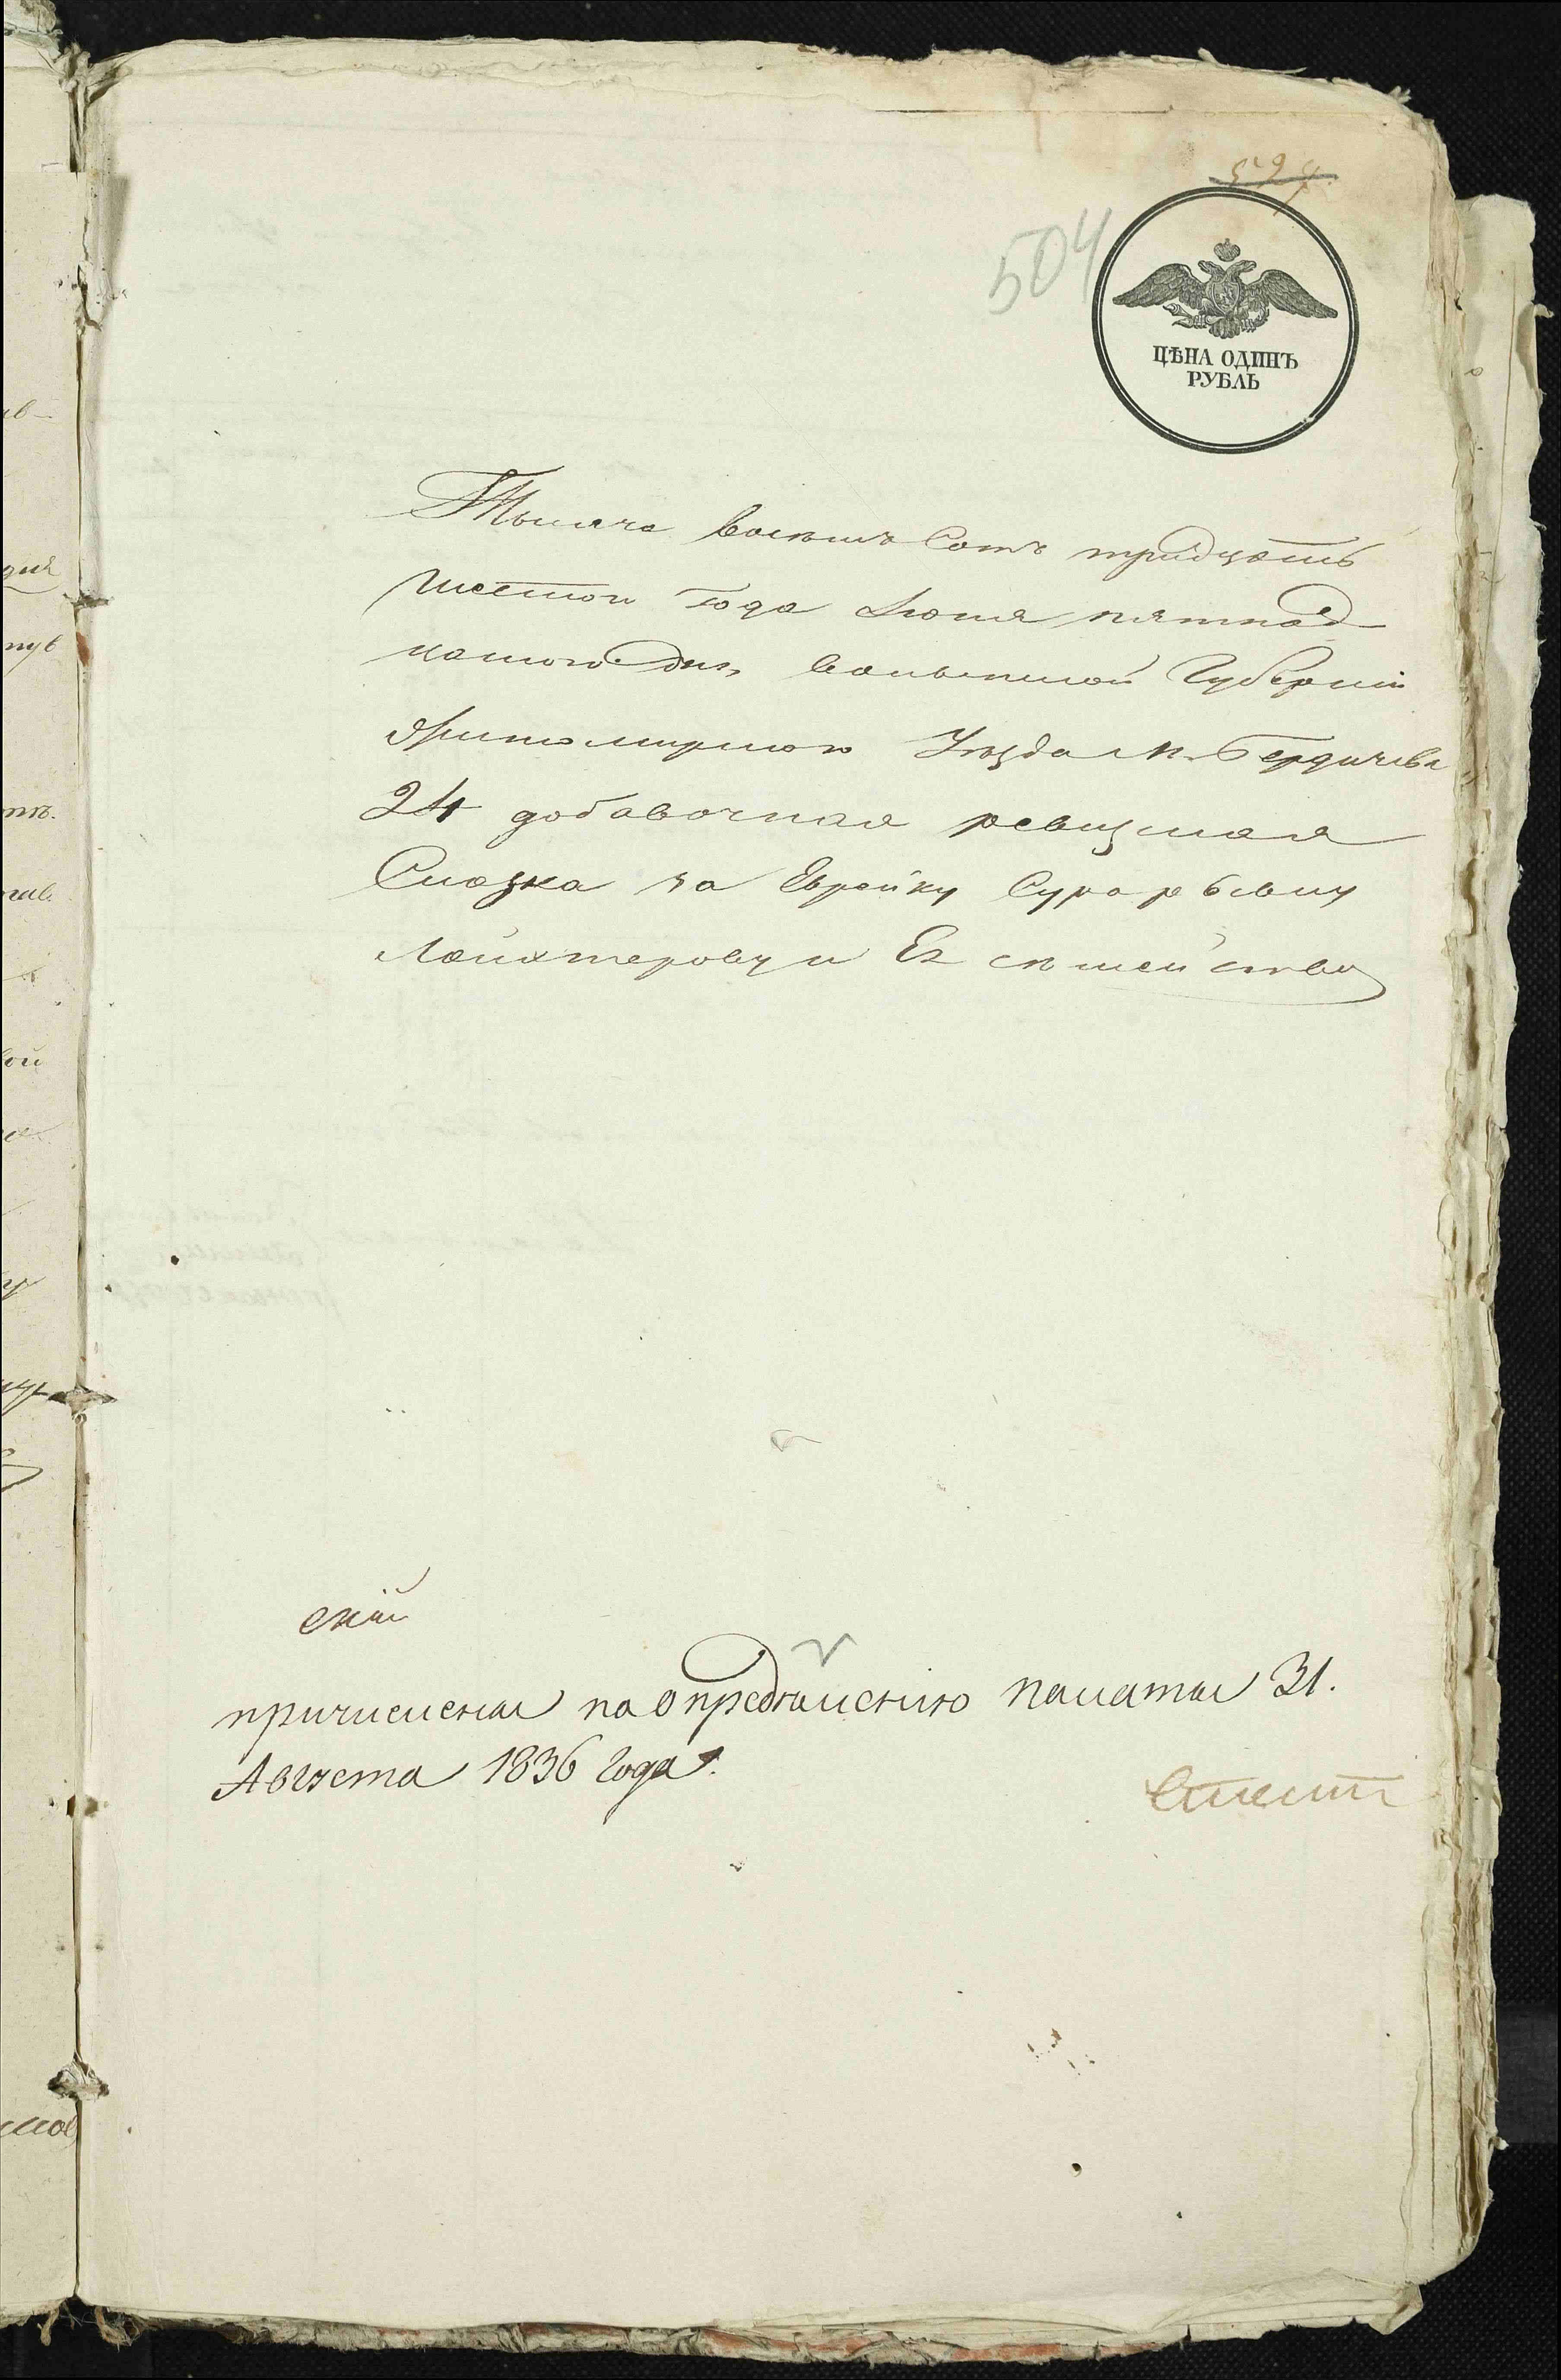 504
ЦѢНА ОДИНЪ
РУБЛЬ
Тысяча восемь Сотъ тридцать
шестого Года Июня пятнад-
цатого дня Волынской Губернии
Житомирского Уѣзда м. Бердичева
24 добавочная ревизская
Сказка на Еврейку Сура
Лейхтерову и Ея семейство
ский
причислены по определению палаты 31.
Августа 1836 года.